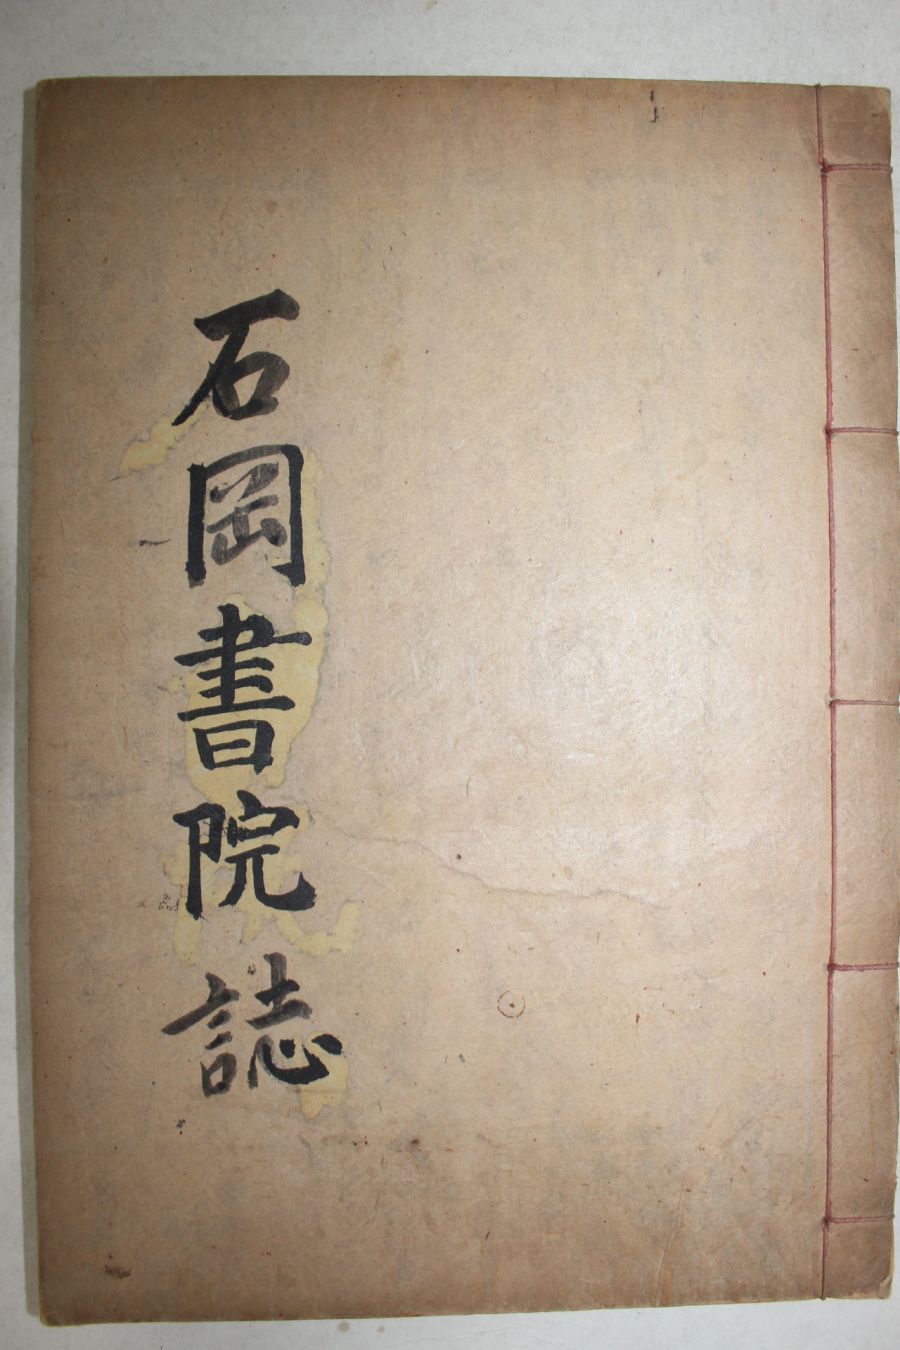 石岡書院誌